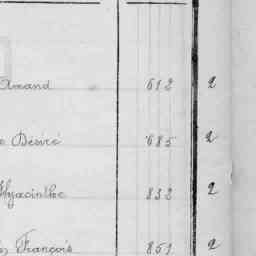 Amand 612 2
Désiré 685 2
Hyacinthe 832 2
François 851 2